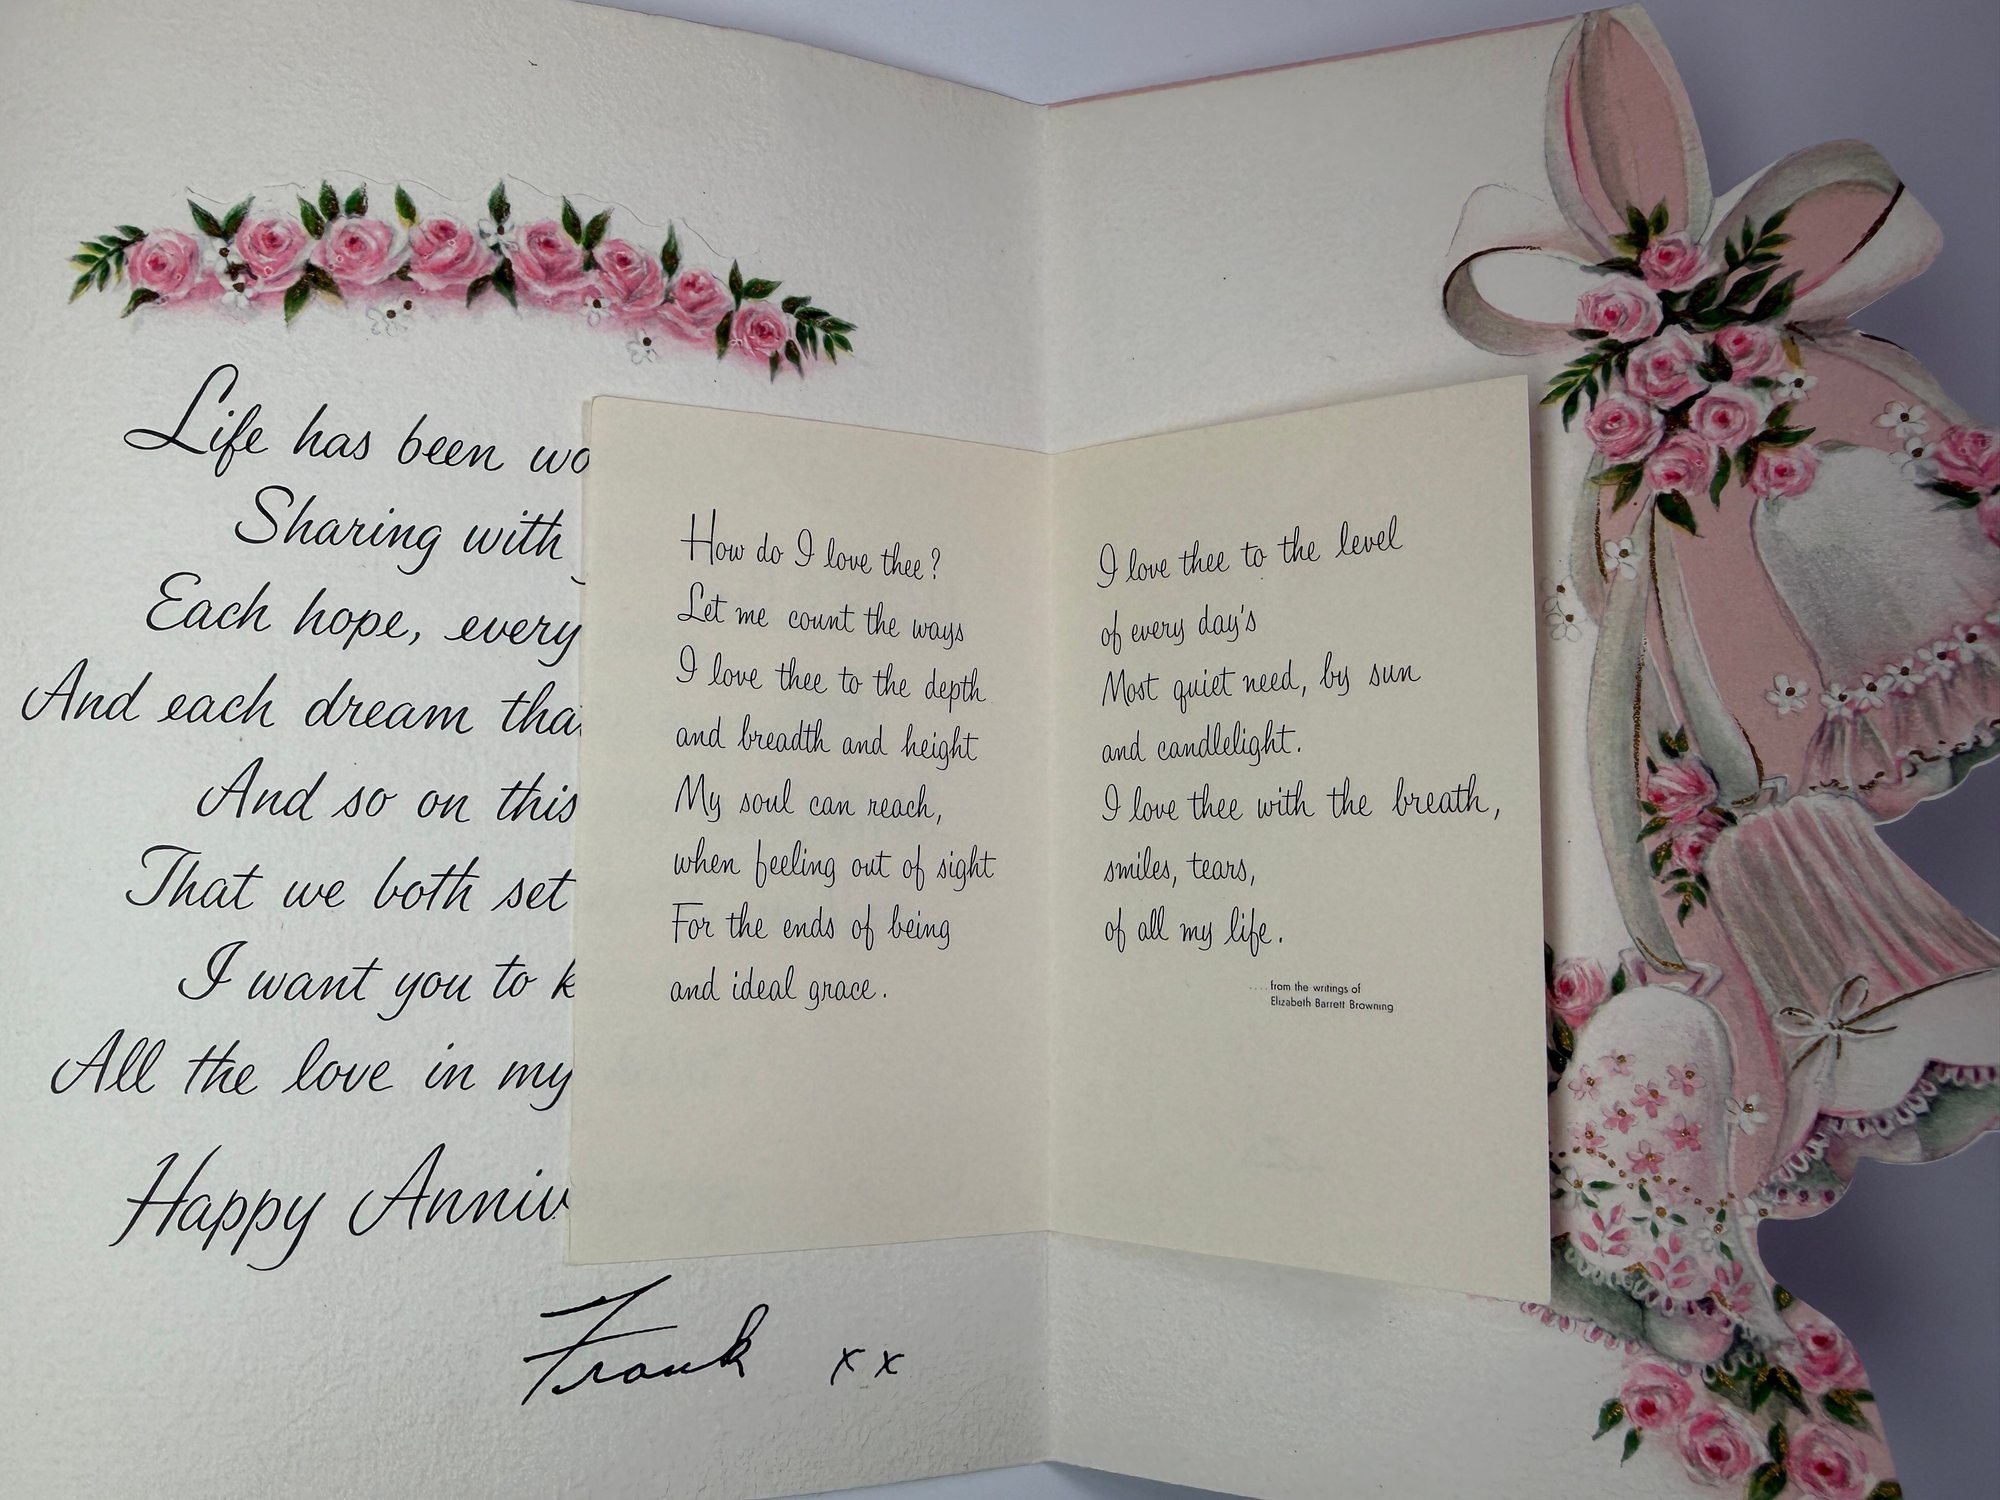 Life has been
Sharing with
Each hope, every
And each dream
And so on this
That we both set
I want you to
All the love in my
Happy
Frank xx
How do I love thee?
Let me count the ways
I love thee to the depth
and breadth and height
My soul can reach,
when feeling out of sight
For the ends of being
and ideal grace.
I love thee to the level
of every day's
Most quiet need, by sun
and candlelight.
I love thee with the breath,
smiles, tears,
of all my life.
....from the writings of
Elizabeth Barrett Browning